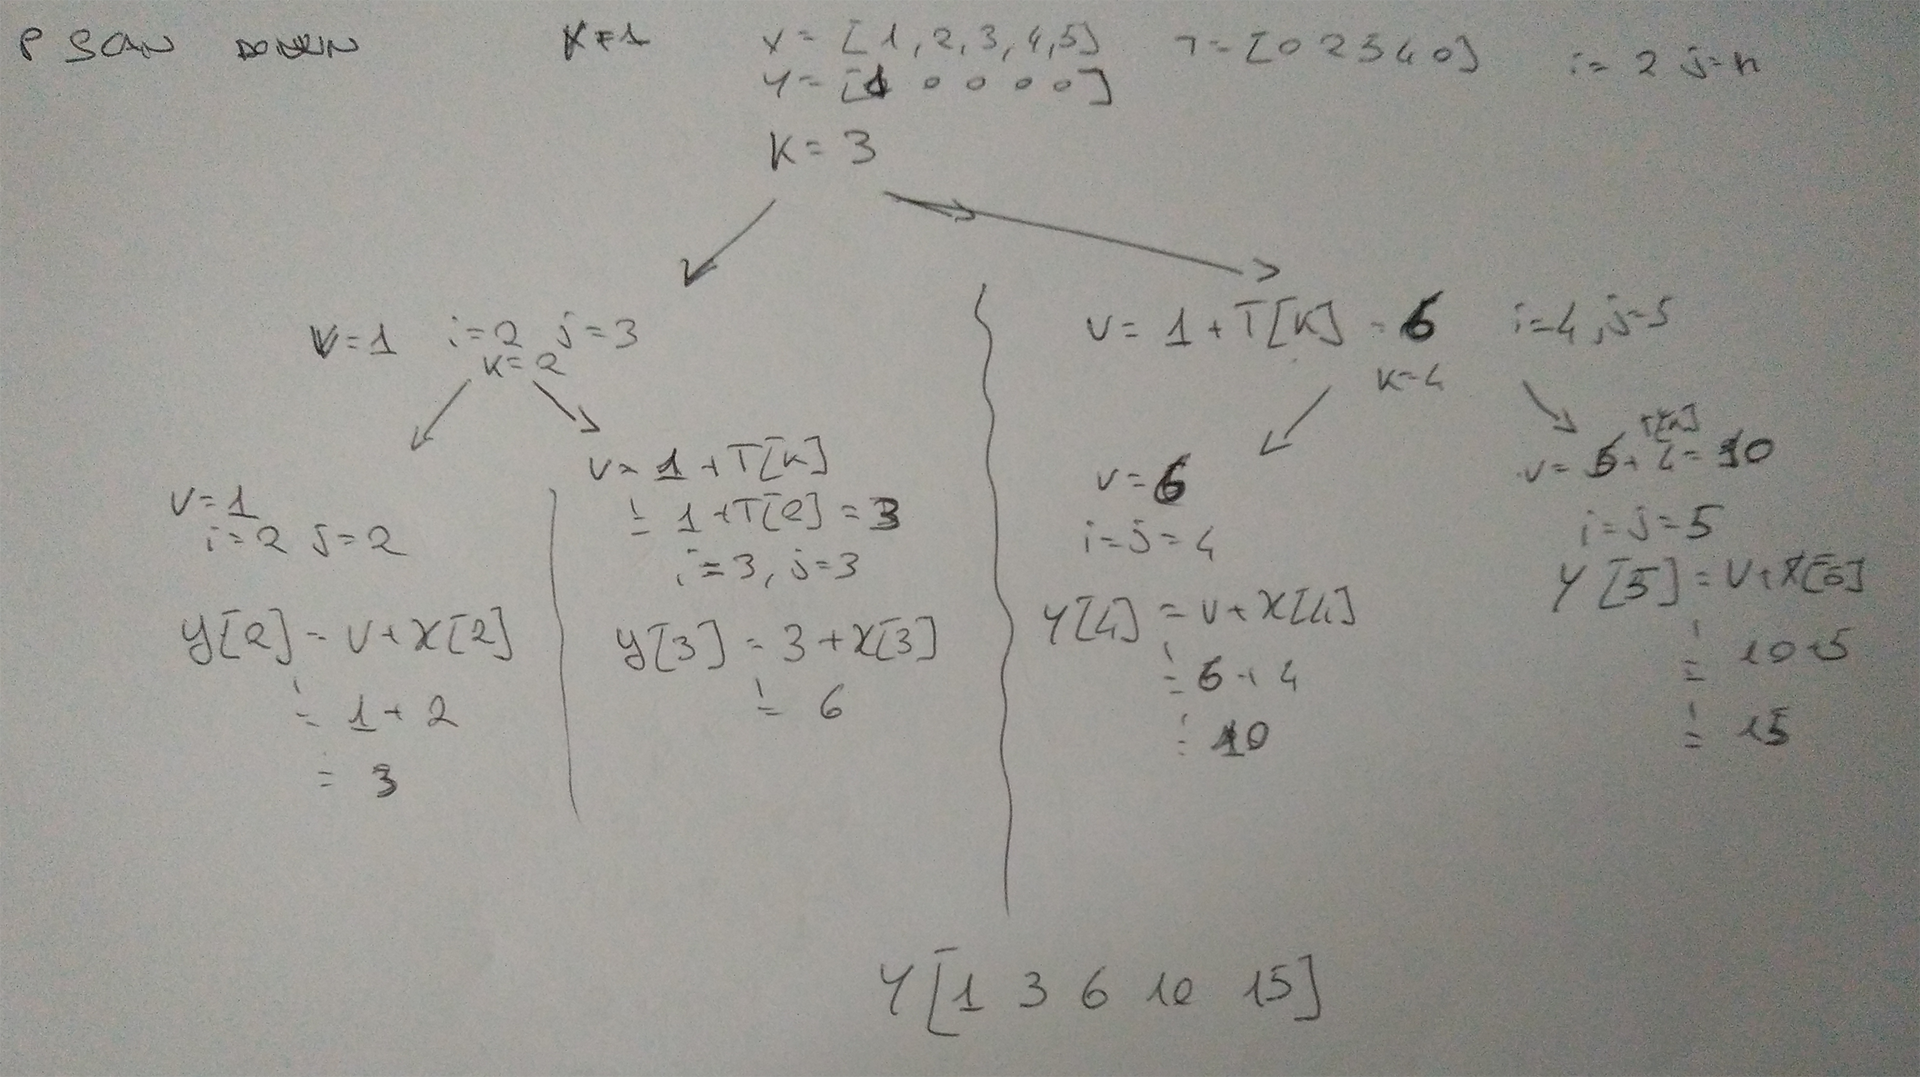 P SCAN DOWN V=1 X=[1,2,3,4,5] T=[0 2 5 4 0] i=2 j=n
Y=[1 0 0 0 0]
K=3
V=1 i=2 j=3
K=2
V=1
i=2 j=2
Y[2]=V+X[2]
=1+2
=3
V=1+T[K]
=1+T[2]=3
i=3, j=3
Y[3]=3+X[3]
=6
V=1+T[K]=6 i=4, j=5
K=4
V=6
i=j=4
Y[4]=V+X[4]
=6+4
=10
T[K]
V=6+4=10
i=j=5
Y[5]=V+X[5]
=10+5
=15
Y[1 3 6 10 15]